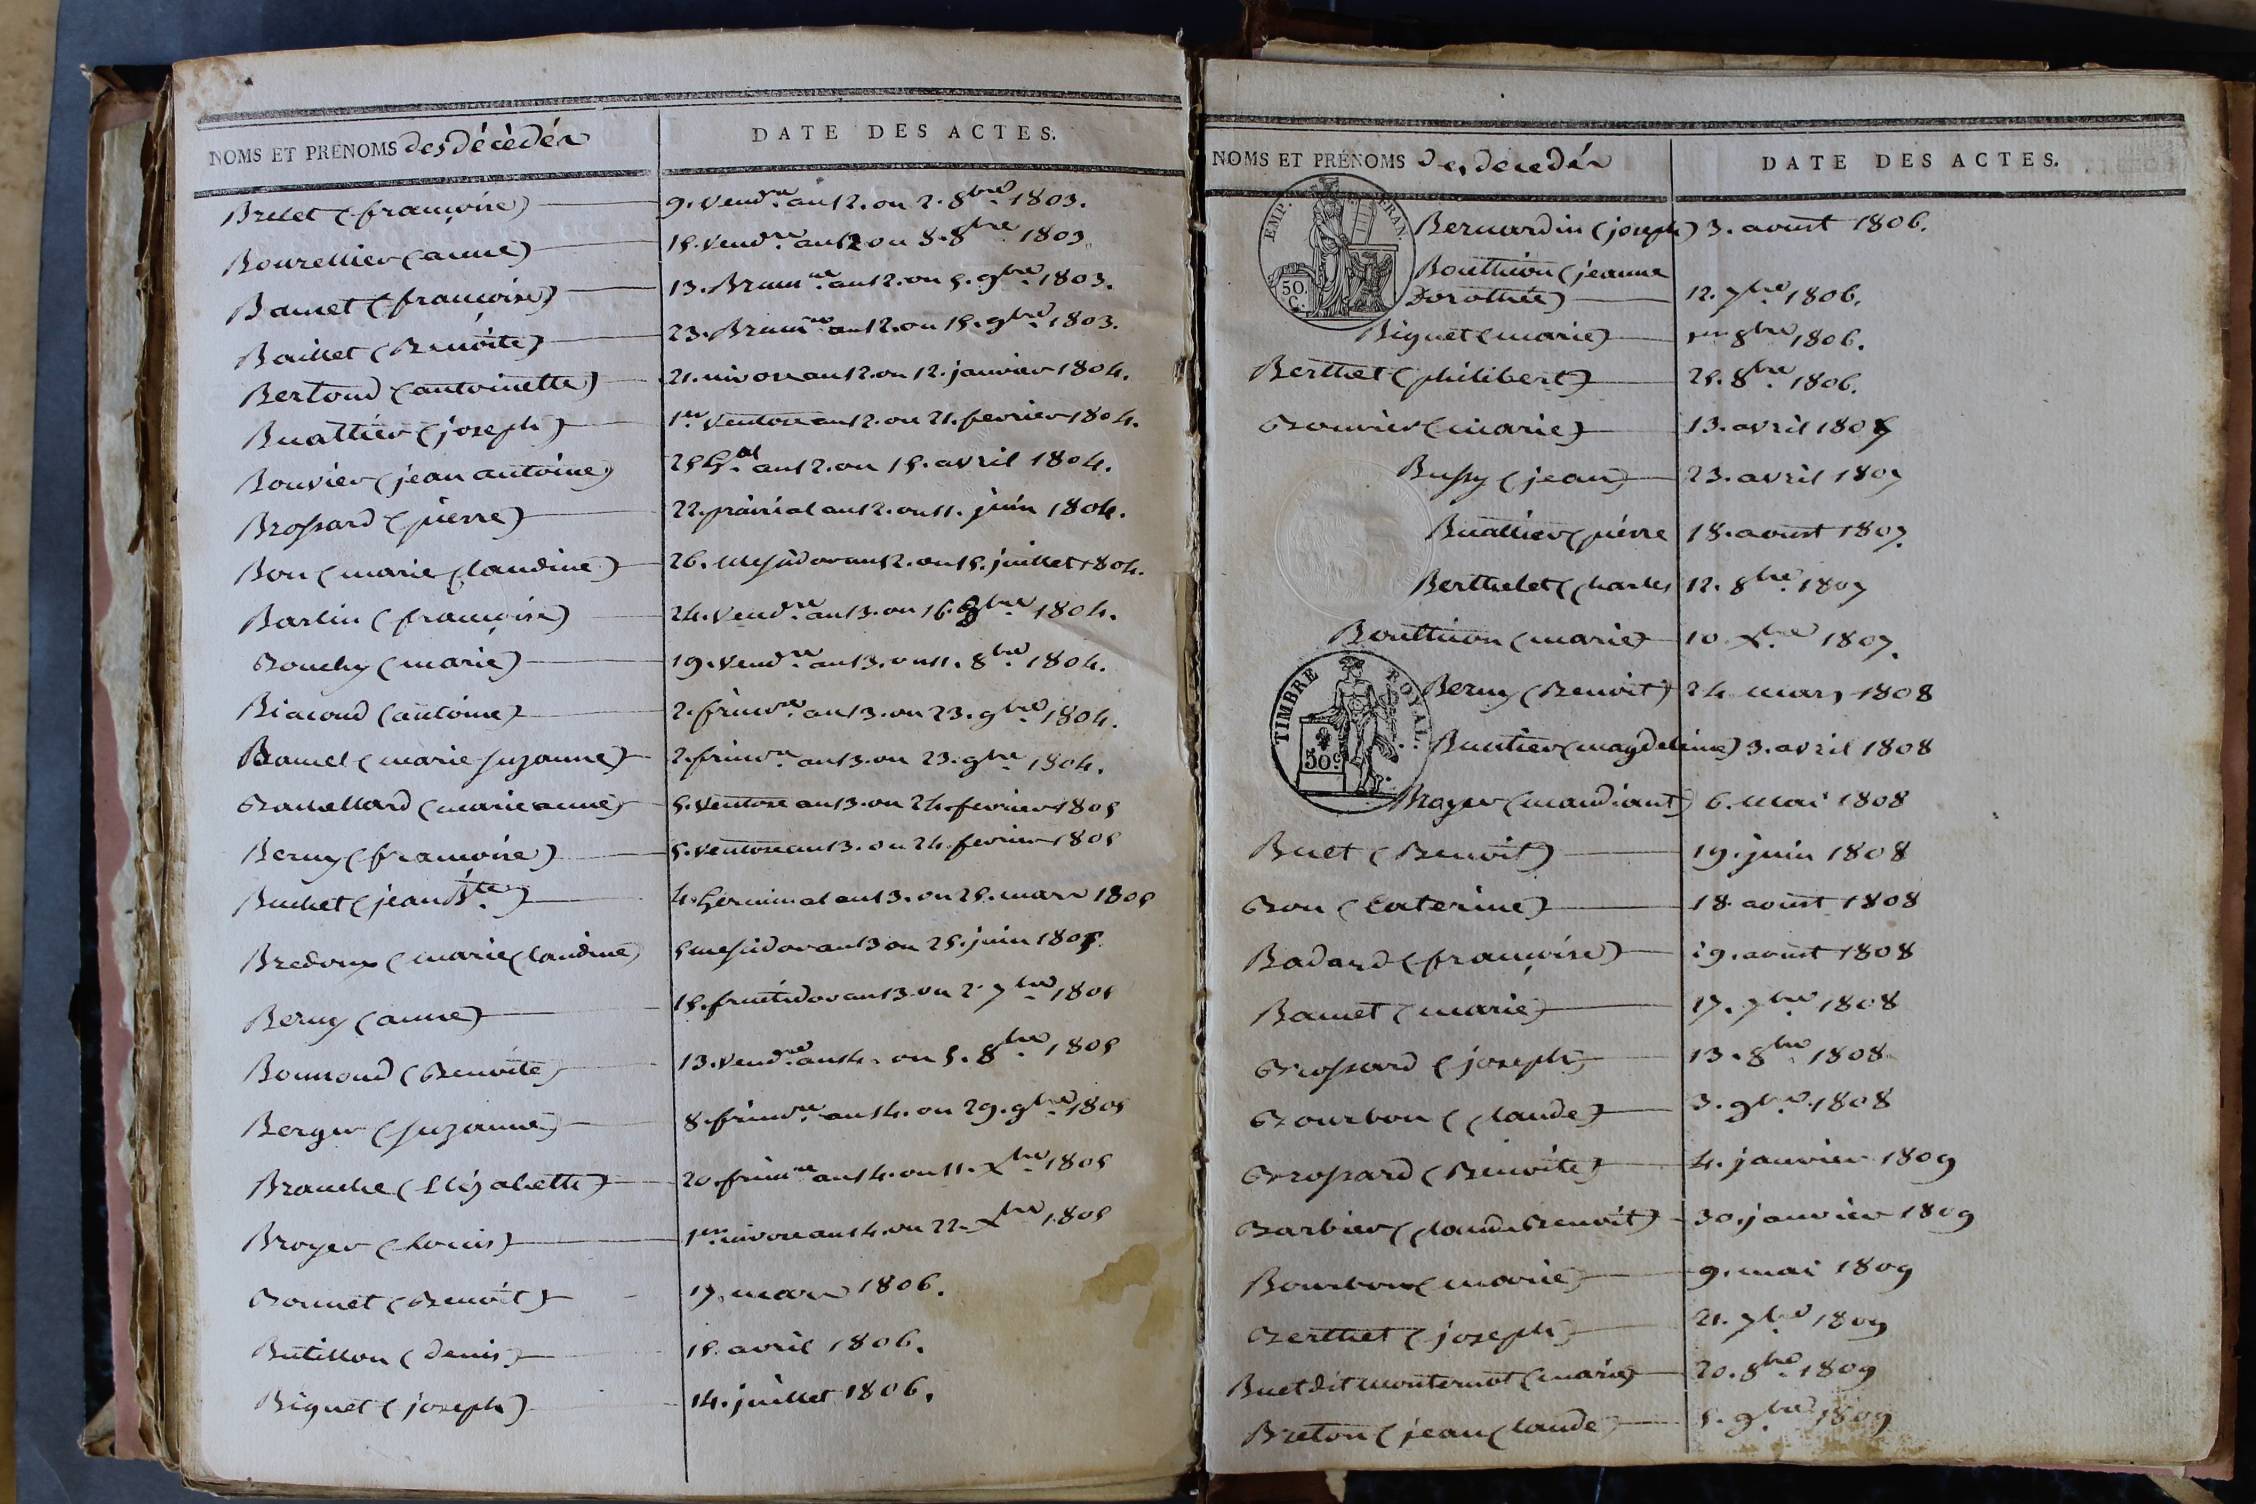 NOMS ET PRÉNOMS des décédés
DATE DES ACTES.
Brelet (françoise) 9. vend.re an 12. ou 2. 8bre 1803.
Bourellier (anne) 15. vend.re an 12 ou 8. 8bre 1803
Bamet (françoise) 13. Brum.re an 12. ou 5. 9bre 1803.
Baillet (Benoite) 23. Brum.re an 12. ou 15. 9bre 1803.
Bertoud (antoinette) 21. nivose an 12. ou 12. janvier 1804.
Buattier (joseph) 1er ventose an 12. ou 21. fevrier 1804.
Bouvier (jean antoine) 25 G.al an 12. ou 15. avril 1804.
Brossard (pierre) 22. prairial an 12. ou 11. juin 1804.
Bon (marie Claudine) 26. Messidor an 12. ou 15. juillet 1804.
Barlin (françoise) 24. vend.re an 13. ou 16. 8bre 1804.
Bouchy (marie) 19. vend.re an 13. ou 11. 8bre 1804.
Biacoud (antoine) 2. frim.re an 13. ou 23. 9bre 1804.
Bamet (marie Suzanne) 2. frim.re an 13. ou 23. 9bre 1804.
(marie anne) 5. ventose an 13. ou 24. fevrier 1805
Berny (françoise) 5. ventose an 13. ou 24. fevrier 1805
Buchet (jean Bte) 4. Germinal an 13. ou 25. mars 1805
Bredoux (marie Claudine) 5 messidor an 13 ou 25. juin 1805.
Berny (anne) 15. fructidor an 13. ou 2. 7bre 1805
Bonnoud (Benoite) 13. vend.re an 14. ou 5. 8bre 1805
Berger (Suzanne) 8. frim.re an 14. ou 29. 9bre 1805
Branche (Elizabette) 20. frim.re an 14. ou 11. Xbre 1805
Broyer (Louis) 1er nivose an 14. ou 22. Xbre 1805
Bonnet (Benoît) 17. mars 1806.
Butillon (denis) 15. avril 1806.
Biguet (joseph) 14. juillet 1806.
NOMS ET PRÉNOMS des decedés
DATE DES ACTES.
EMP. FRAN.
50. C.
Bernardin (joseph) 3. aoust 1806.
Bouthion (jeanne
Dorothée) 12. 7bre 1806.
Biguet (marie) 1er 8bre 1806.
Berthet (philibert) 25. 8bre 1806.
Bouvier (marie) 13. avril 1807
Bussy (jean) 23. avril 1807
Buattier (pierre 18. aoust 1807.
Berthelet (Charles 12. 8bre 1807
Bouthion (marie) 10. Xbre 1807.
TIMBRE ROYAL.
50 c.
Berny (Benoit) 24 mars 1808
Buatier (magdeleine) 3. avril 1808
Broyer (mandiant) 6. mai 1808
Buet (Benoit) 19. juin 1808
Bon (Caterine) 18 aoust 1808
Badard (françoise) 29. aoust 1808
Bamet (marie) 17. 7bre 1808
Brossard (joseph) 13. 8bre 1808
Bourbon (Claude) 3. 9bre 1808
Brossard (Benoite) 4. janvier 1809
Barbier (Claude Benoit) 30. janvier 1809
Bourbon (marie) 9. mai 1809
Berthet (joseph) 21. 7bre 1809
Buet dit Monternot (marie) 20. 8bre 1809
Breton (jean Claude) 5. 9bre 1809